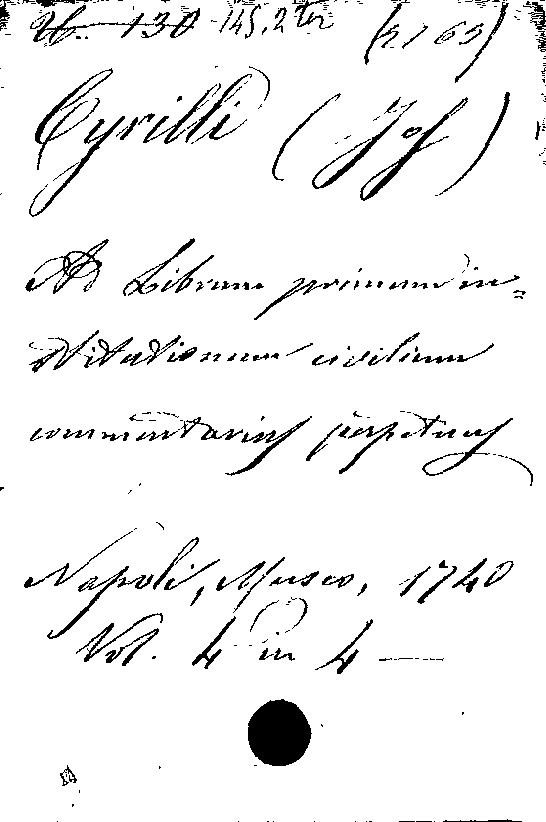 130 145.2 ter (2163)
Cyrilli (Jos)
Ad Librum primum in=
stitutionum civilium
commentarius perpetuus
Napoli, Museo, 1740
Vol. 4 in 4 —